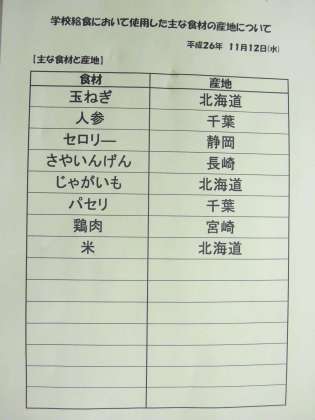 学校給食において使用した主な食材の産地について
平成26年 11月12日(水)
【主な食材と産地】
食材 産地
玉ねぎ 北海道
人参 千葉
セロリー 静岡
さやいんげん 長崎
じゃがいも 北海道
パセリ 千葉
鶏肉 宮崎
米 北海道